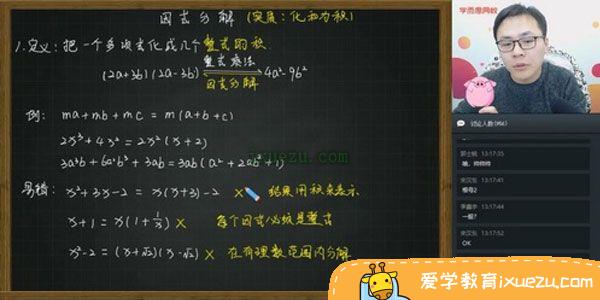 因式分解 (实质: 化和为积)
学而思网校
1.定义: 把一个多项式化成几个整式的积.
(2a+3b)(2a-3b) 整式乘法 因式分解 4a²-9b²
例: ma+mb+mc = m(a+b+c)
2x³+4x² = 2x²(x+2)
3a³b+6a²b³+3ab = 3ab(a²+2ab²+1)
易错: x²+3x-2 = x(x+3)-2 × 结果用积来表示
x+1 = x(1+1/x) × 每个因式必须是整式
x²-2 = (x+√2)(x-√2) × 在有理数范围内分解
ixuezu.com
讨论人数
13:17:35
嗯，帅帅帅
宋汉东 13:17:35
根号2
李鑫宇 13:17:44
一般?
宋汉东 13:17:52
OK
爱学教育ixuezu.com